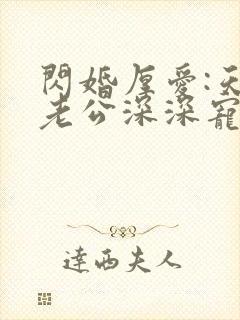 閃婚厚愛:天
老公深深寵
達西夫人